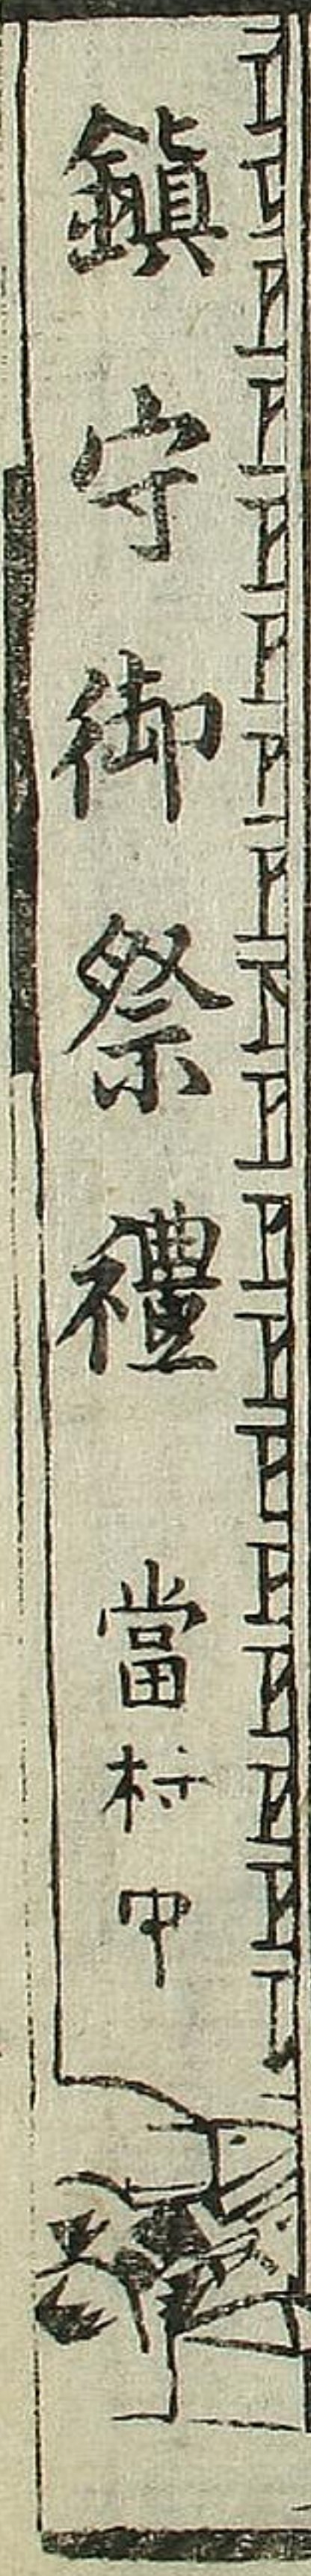 鎮守御祭禮 當村中